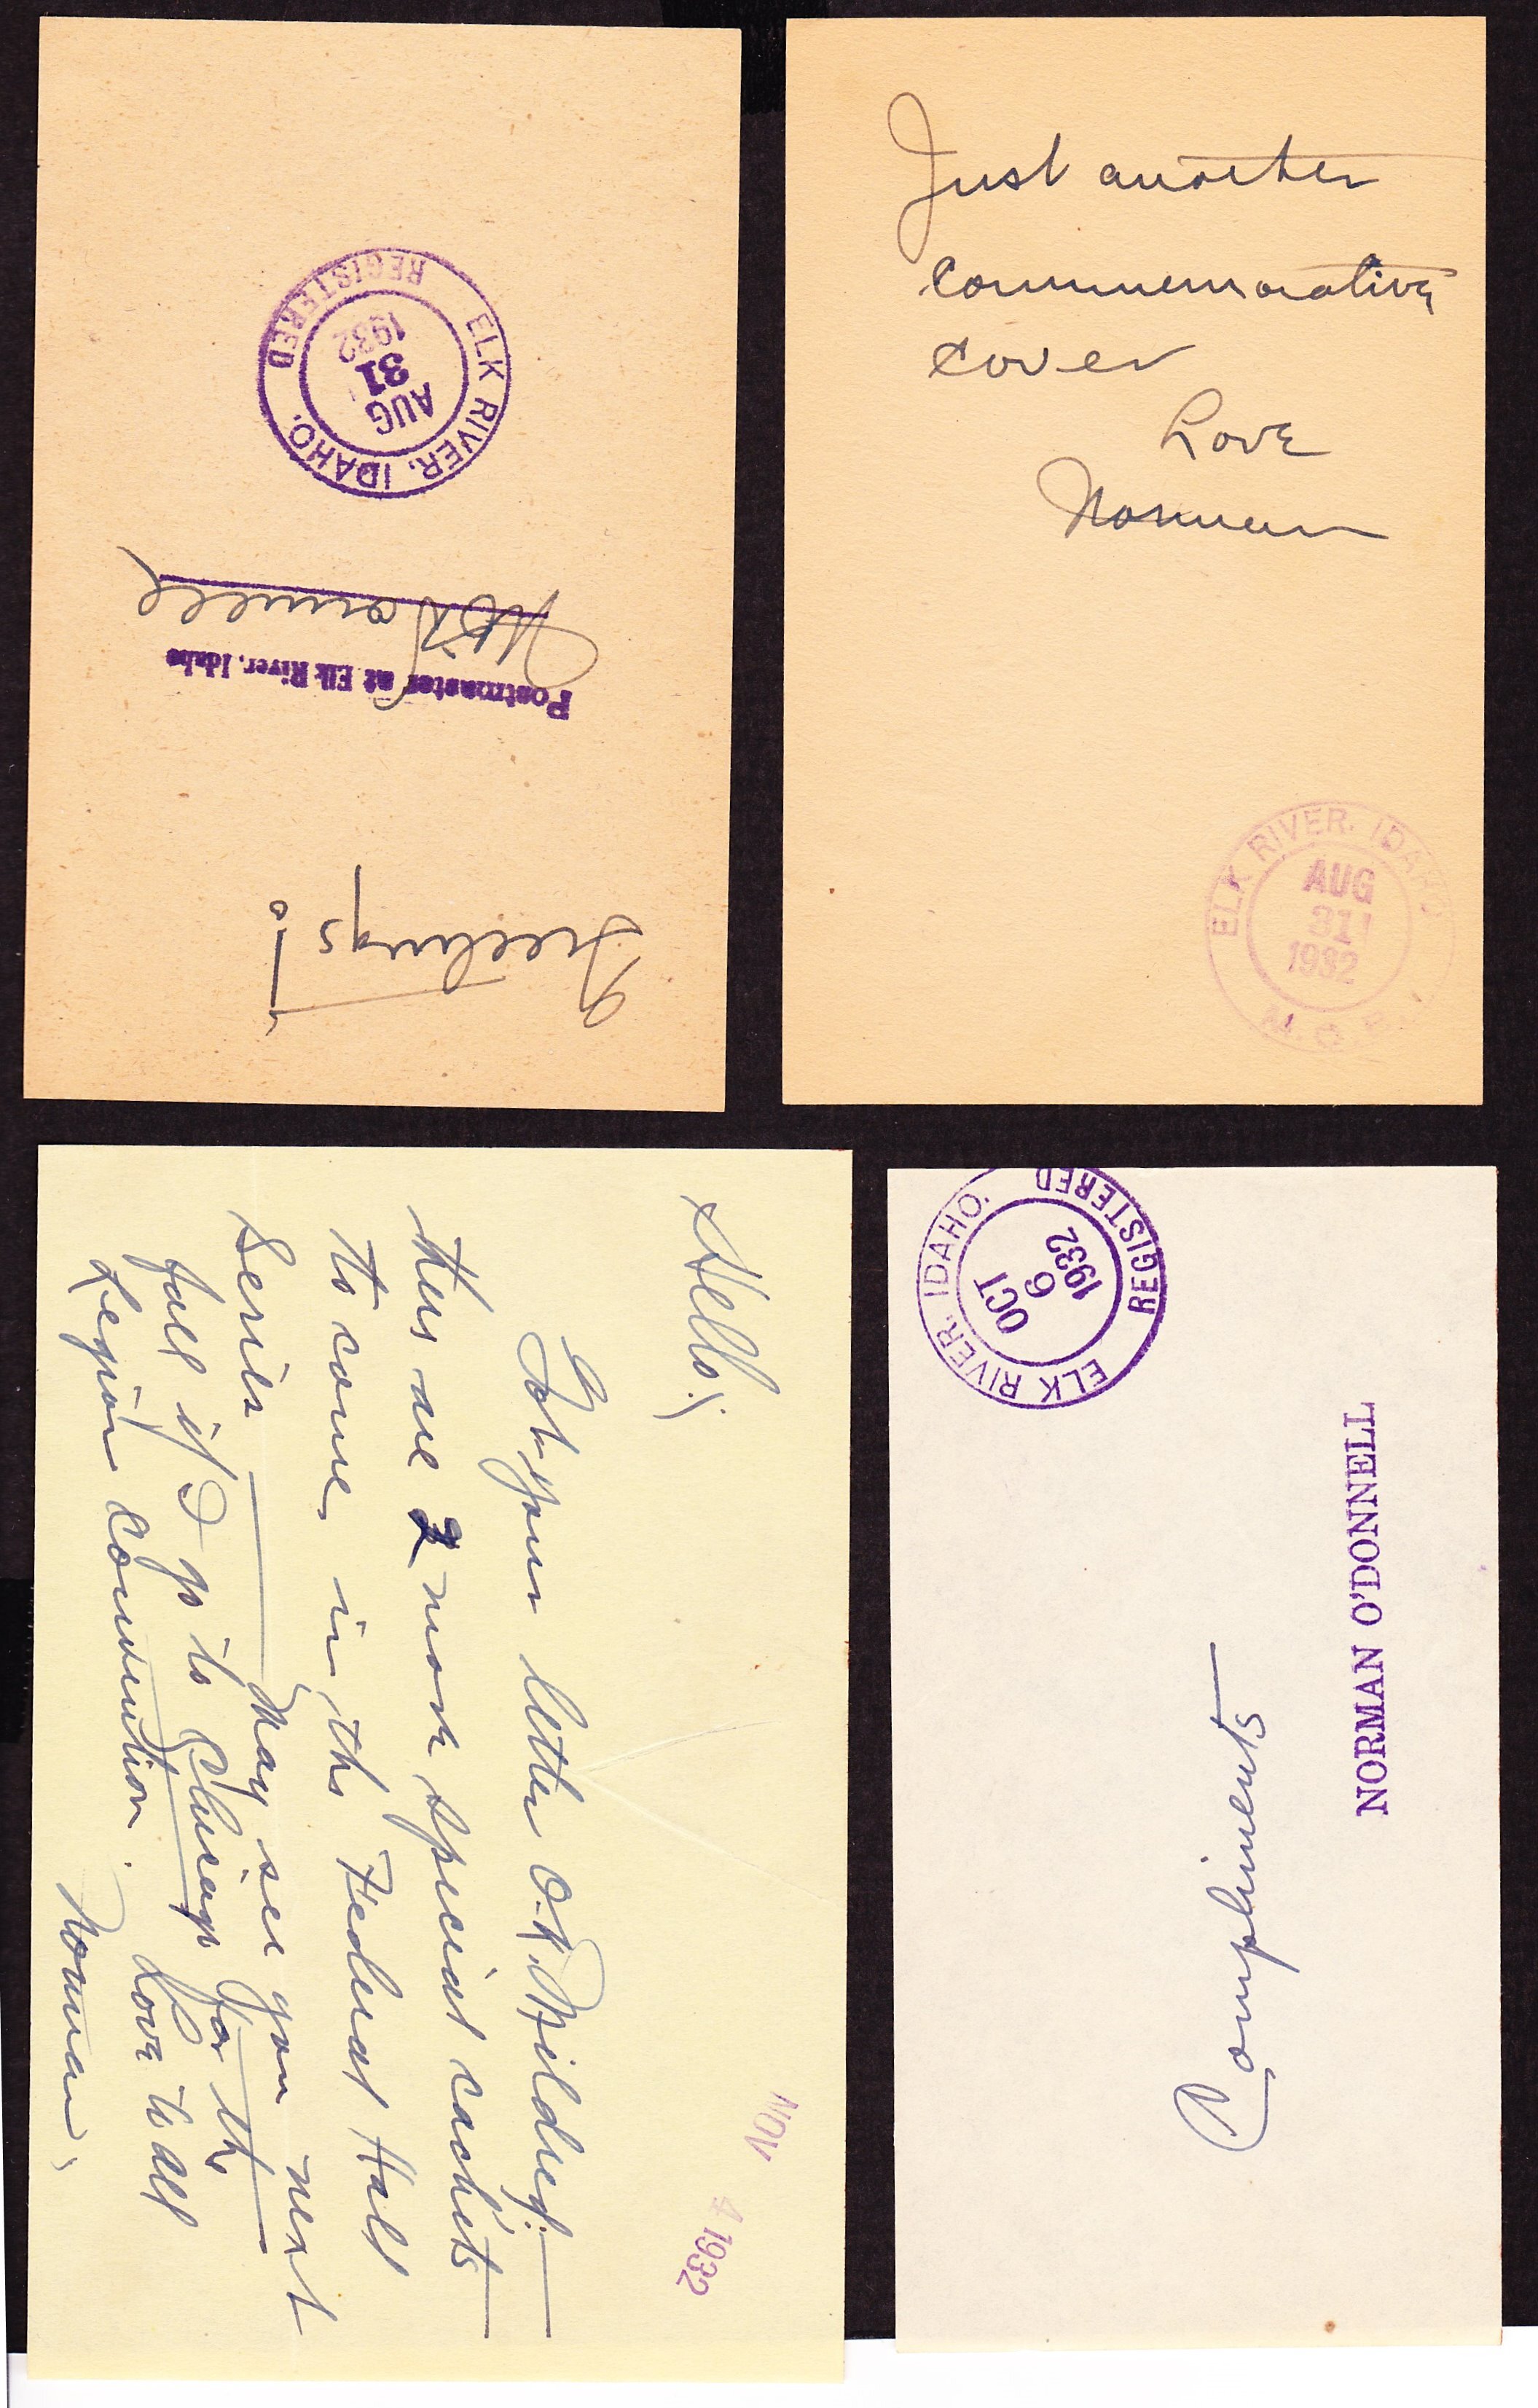 Greetings
to
Postmaster at Elk River, Idaho
ELK RIVER, IDAHO.
REGISTERED
AUG
31
1932
Just another
commemorative
cover
Love
Norman
ELK RIVER, IDAHO
AUG
31
1932
M.O.B.
NOV 4 1932
Hello;
Got your letter O.K. Mildred:
there are 2 more special cachets
to come, in the Federal Hall
Series — May see you next
fall if I go to Chicago for the
Legion Convention. Love to all
Norman
ELK RIVER, IDAHO.
REGISTERED
OCT
6
1932
Compliments
NORMAN O'DONNELL